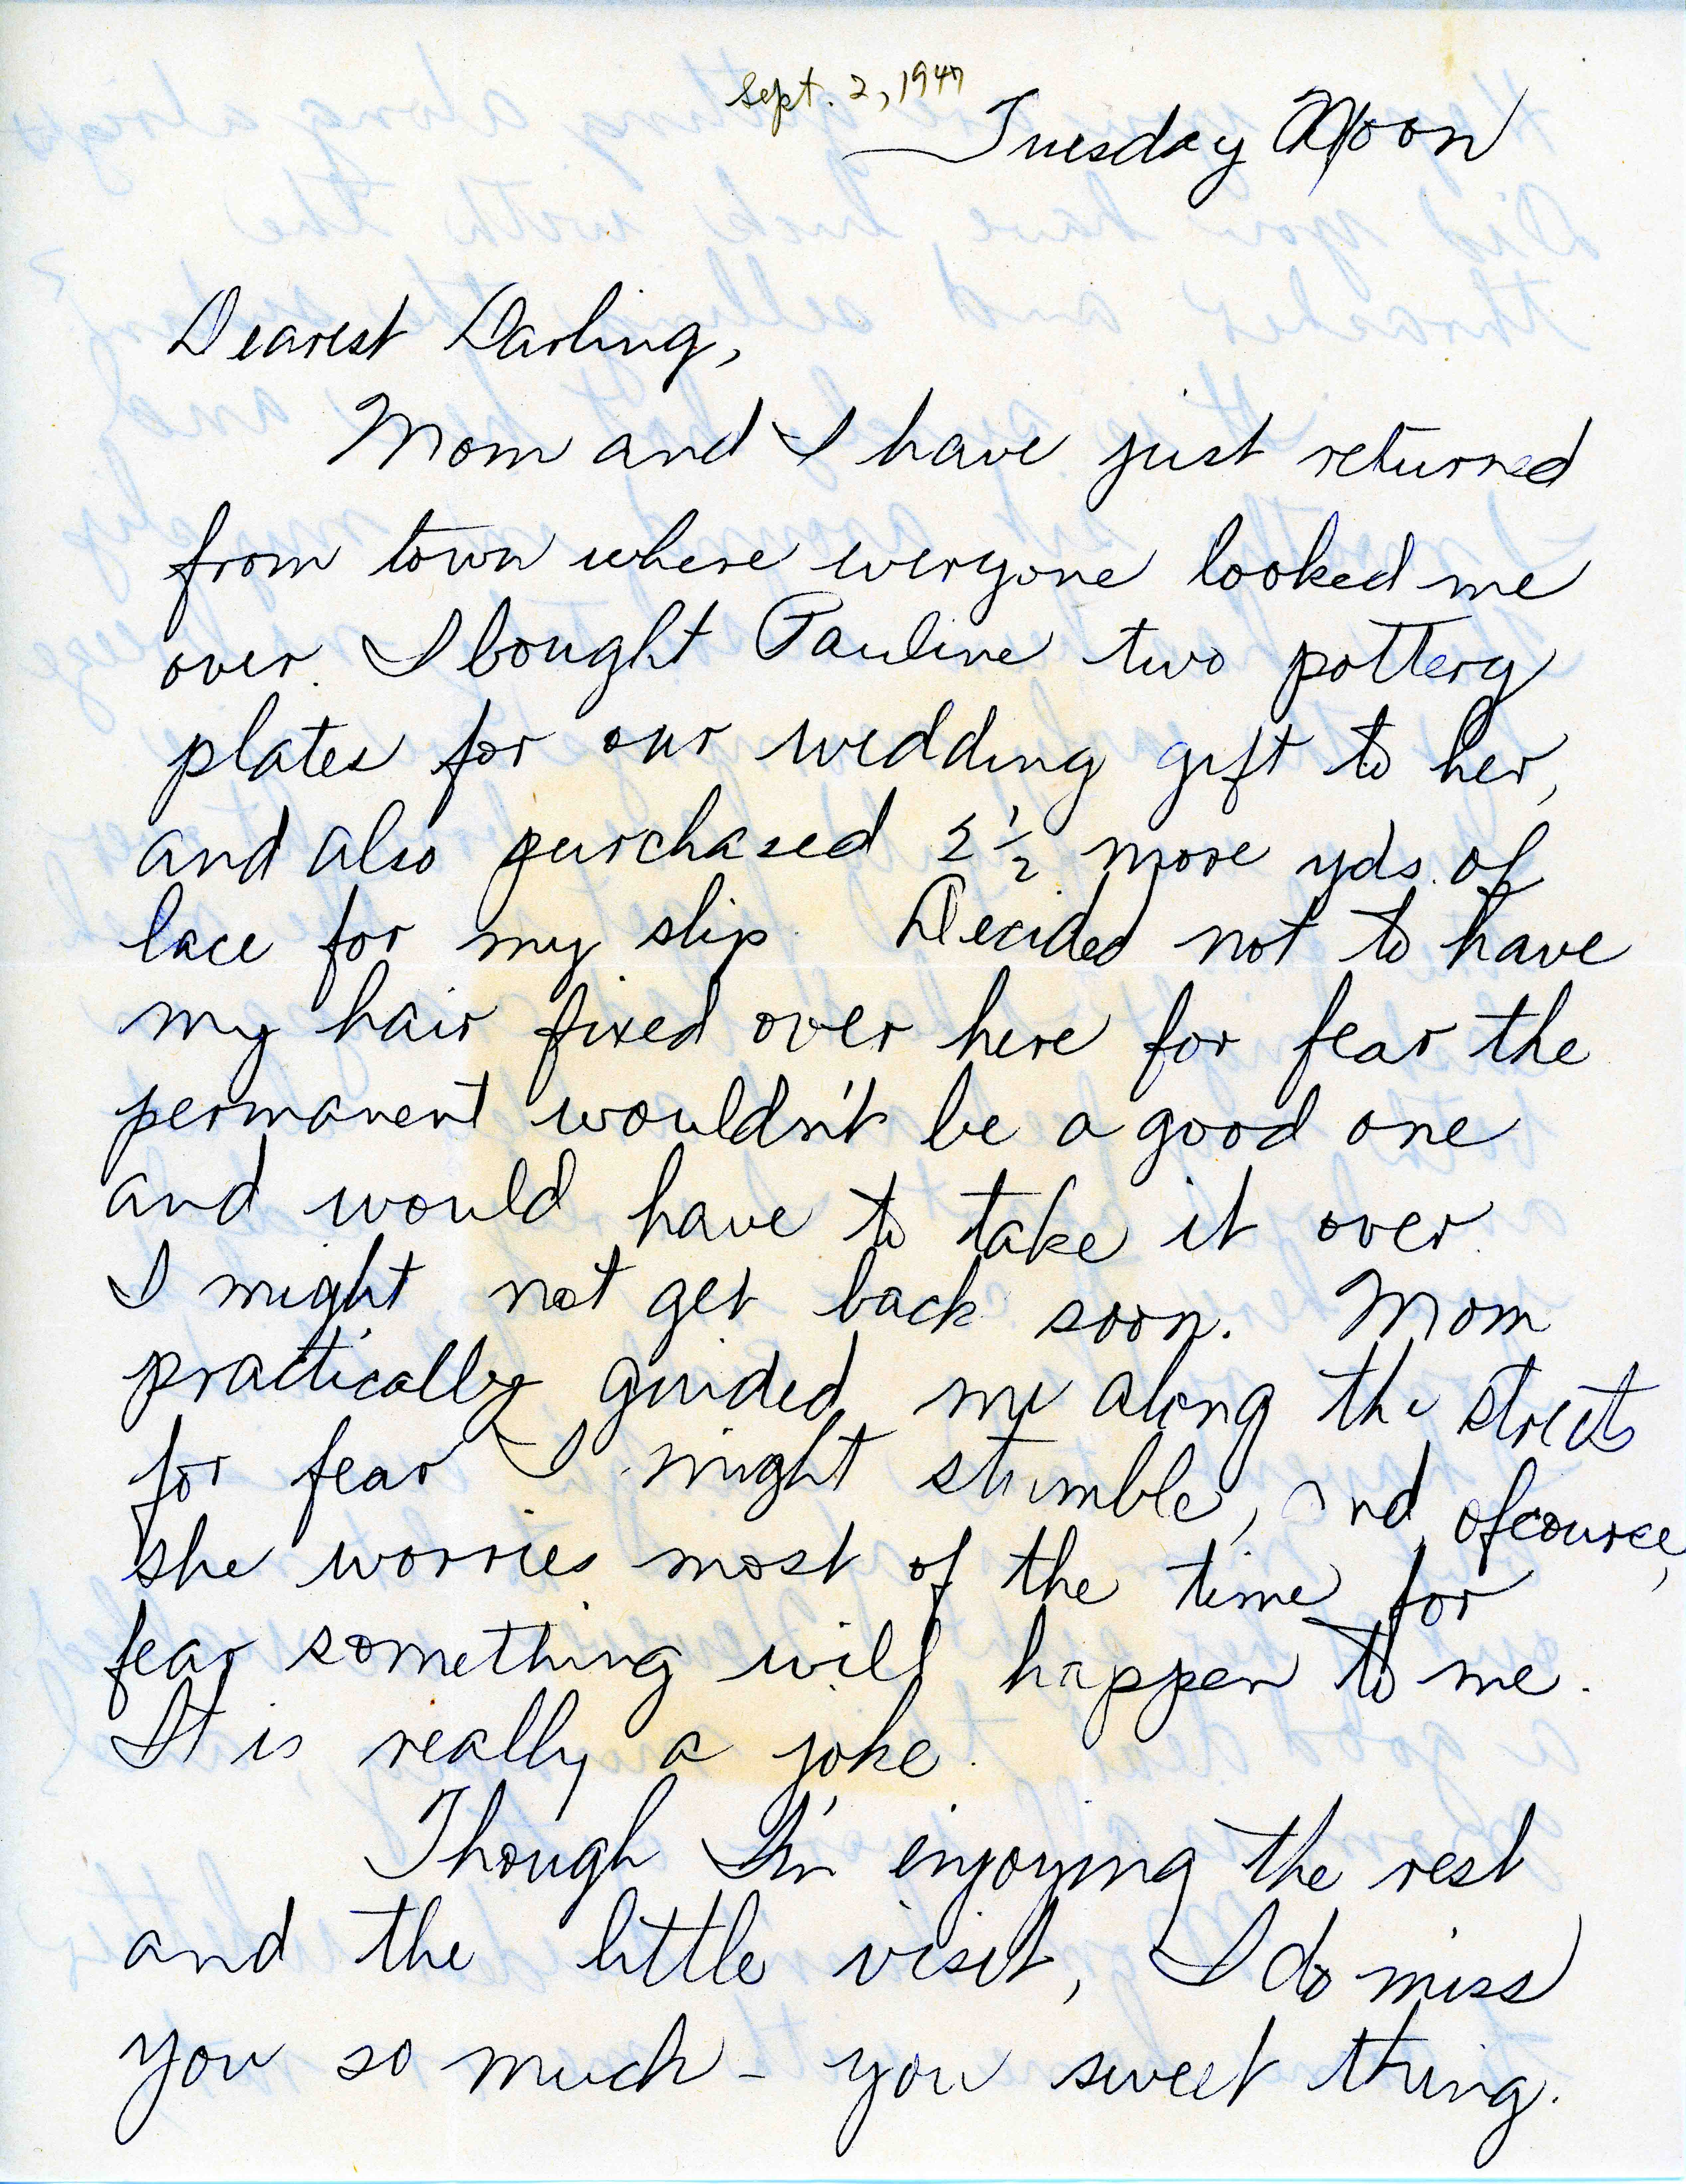 Sept. 2, 1947
Tuesday Noon
Dearest Darling,
Mom and I have just returned
from town where everyone looked me
over. I bought Pauline two pottery
plates for our wedding gift to her,
and also purchased 2 1/2 more yds. of
lace for my slip. Decided not to have
my hair fixed over here for fear the
permanent wouldn't be a good one
and would have to take it over.
I might not get back soon. Mom
practically guided me along the streets
for fear I might stumble, and, ofcource,
she worries most of the time for
fear something will happen to me.
It is really a joke.
Though I'm enjoying the rest
and the little visit, I do miss
you so much - you sweet thing.